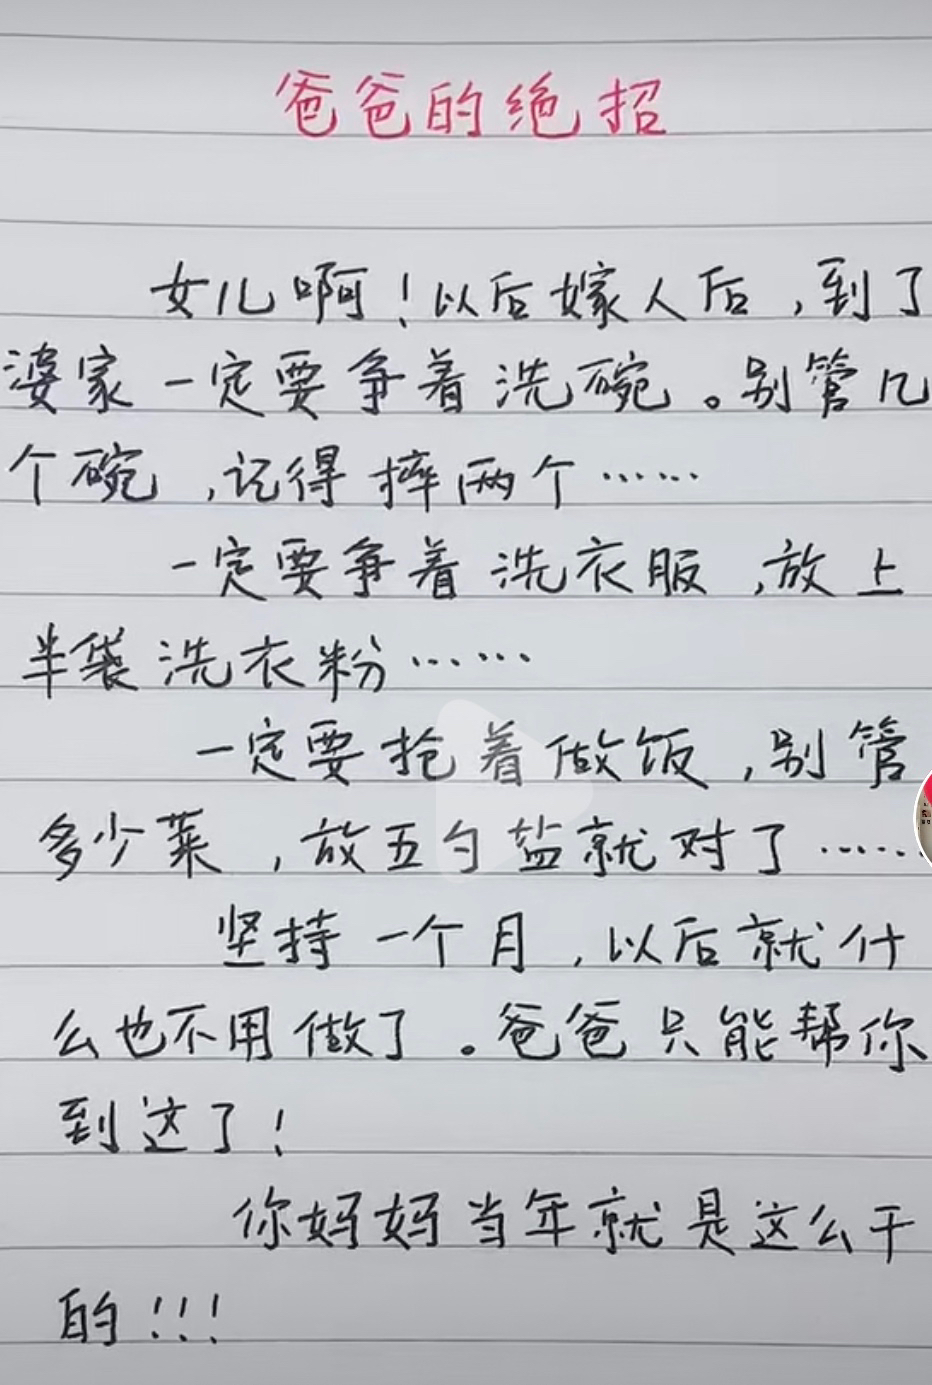 爸爸的绝招
女儿啊！以后嫁人后，到了
婆家一定要争着洗碗。别管几
个碗，记得摔两个……
一定要争着洗衣服，放上
半袋洗衣粉……
一定要抢着做饭，别管
多少菜，放五勺盐就对了……
坚持一个月，以后就什
么也不用做了。爸爸只能帮你
到这了！
你妈妈当年就是这么干
的！！！